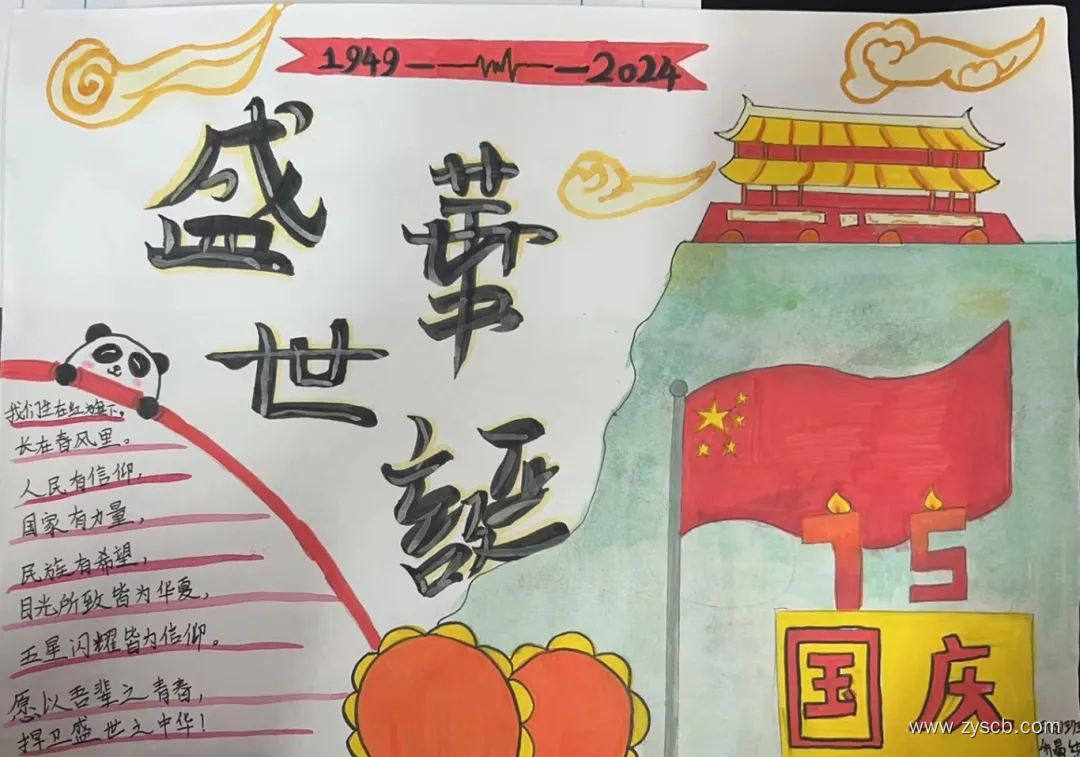 1949——2024
盛世
華誕
我们生在红旗下。
长在春风里。
人民有信仰,
国家有力量,
民族有希望,
目光所致皆为华夏,
五星闪耀皆为信仰。
愿以吾辈之青春,
捍卫盛世之中华!
75
国庆
www.zyscb.com